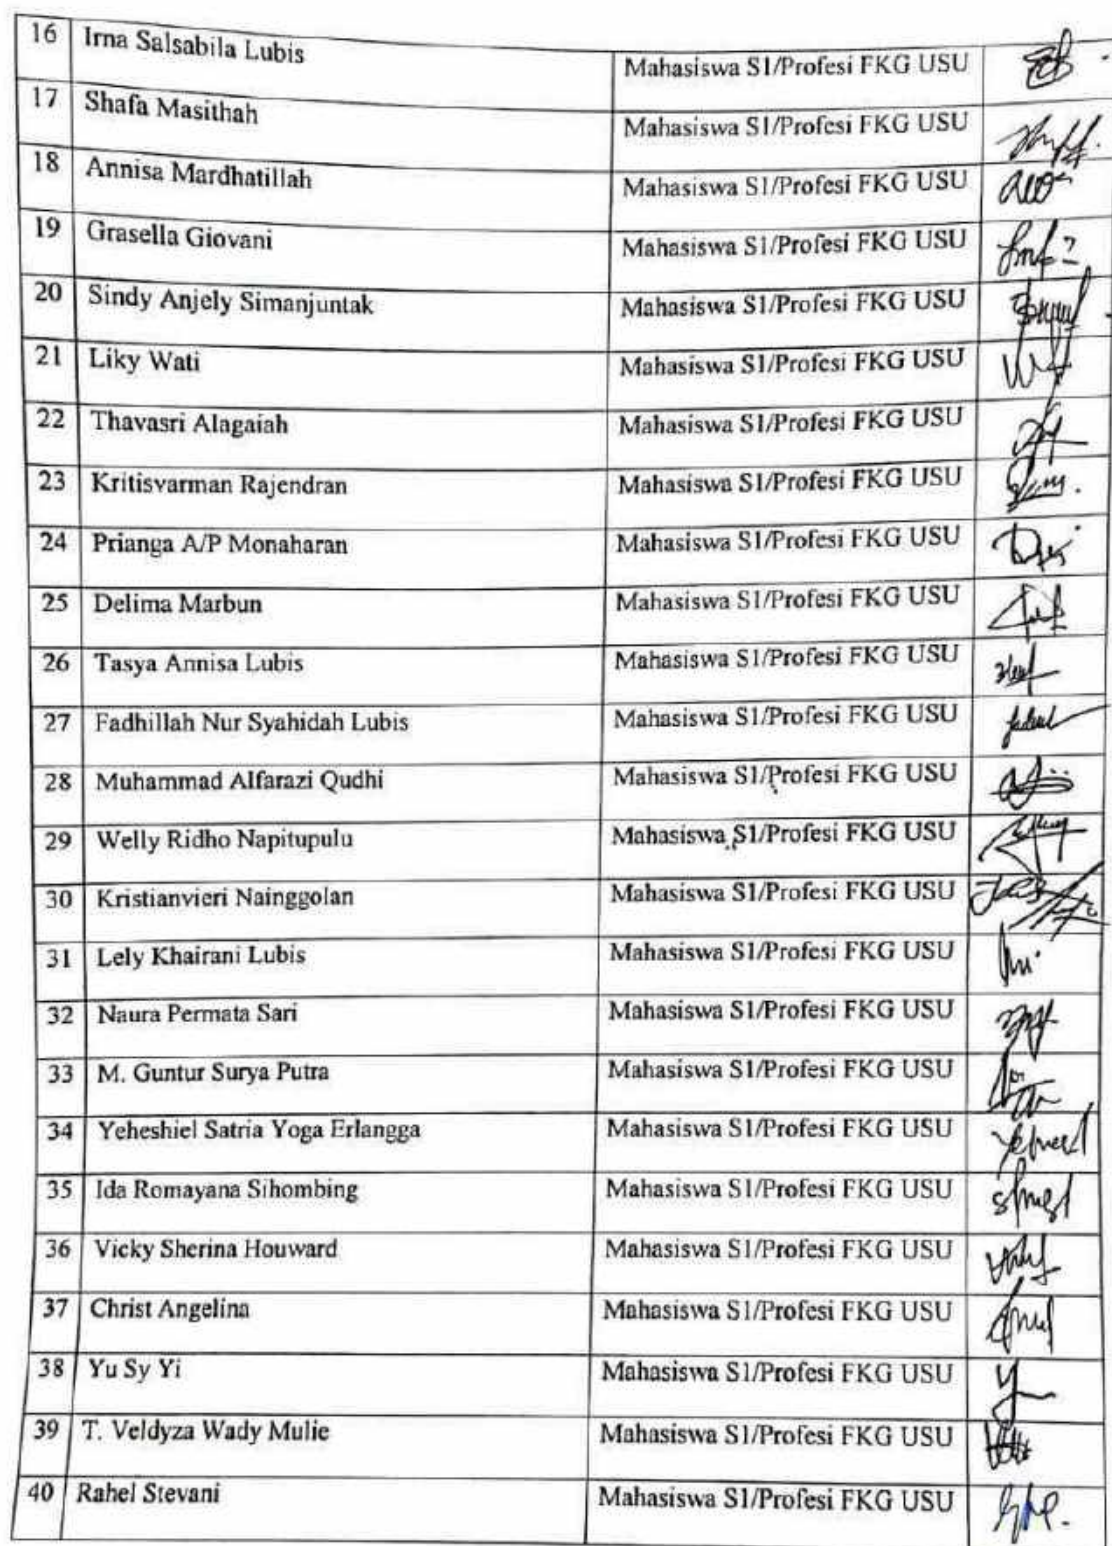 16 Irna Salsabila Lubis Mahasiswa S1/Profesi FKG USU
17 Shafa Masithah Mahasiswa S1/Profesi FKG USU
18 Annisa Mardhatillah Mahasiswa S1/Profesi FKG USU
19 Grasella Giovani Mahasiswa S1/Profesi FKG USU
20 Sindy Anjely Simanjuntak Mahasiswa S1/Profesi FKG USU
21 Liky Wati Mahasiswa S1/Profesi FKG USU
22 Thavasri Alagaiah Mahasiswa S1/Profesi FKG USU
23 Kritisvarman Rajendran Mahasiswa S1/Profesi FKG USU
24 Prianga A/P Monaharan Mahasiswa S1/Profesi FKG USU
25 Delima Marbun Mahasiswa S1/Profesi FKG USU
26 Tasya Annisa Lubis Mahasiswa S1/Profesi FKG USU
27 Fadhillah Nur Syahidah Lubis Mahasiswa S1/Profesi FKG USU
28 Muhammad Alfarazi Qudhi Mahasiswa S1/Profesi FKG USU
29 Welly Ridho Napitupulu Mahasiswa S1/Profesi FKG USU
30 Kristianvieri Nainggolan Mahasiswa S1/Profesi FKG USU
31 Lely Khairani Lubis Mahasiswa S1/Profesi FKG USU
32 Naura Permata Sari Mahasiswa S1/Profesi FKG USU
33 M. Guntur Surya Putra Mahasiswa S1/Profesi FKG USU
34 Yeheshiel Satria Yoga Erlangga Mahasiswa S1/Profesi FKG USU
35 Ida Romayana Sihombing Mahasiswa S1/Profesi FKG USU
36 Vicky Sherina Houward Mahasiswa S1/Profesi FKG USU
37 Christ Angelina Mahasiswa S1/Profesi FKG USU
38 Yu Sy Yi Mahasiswa S1/Profesi FKG USU
39 T. Veldyza Wady Mulie Mahasiswa S1/Profesi FKG USU
40 Rahel Stevani Mahasiswa S1/Profesi FKG USU